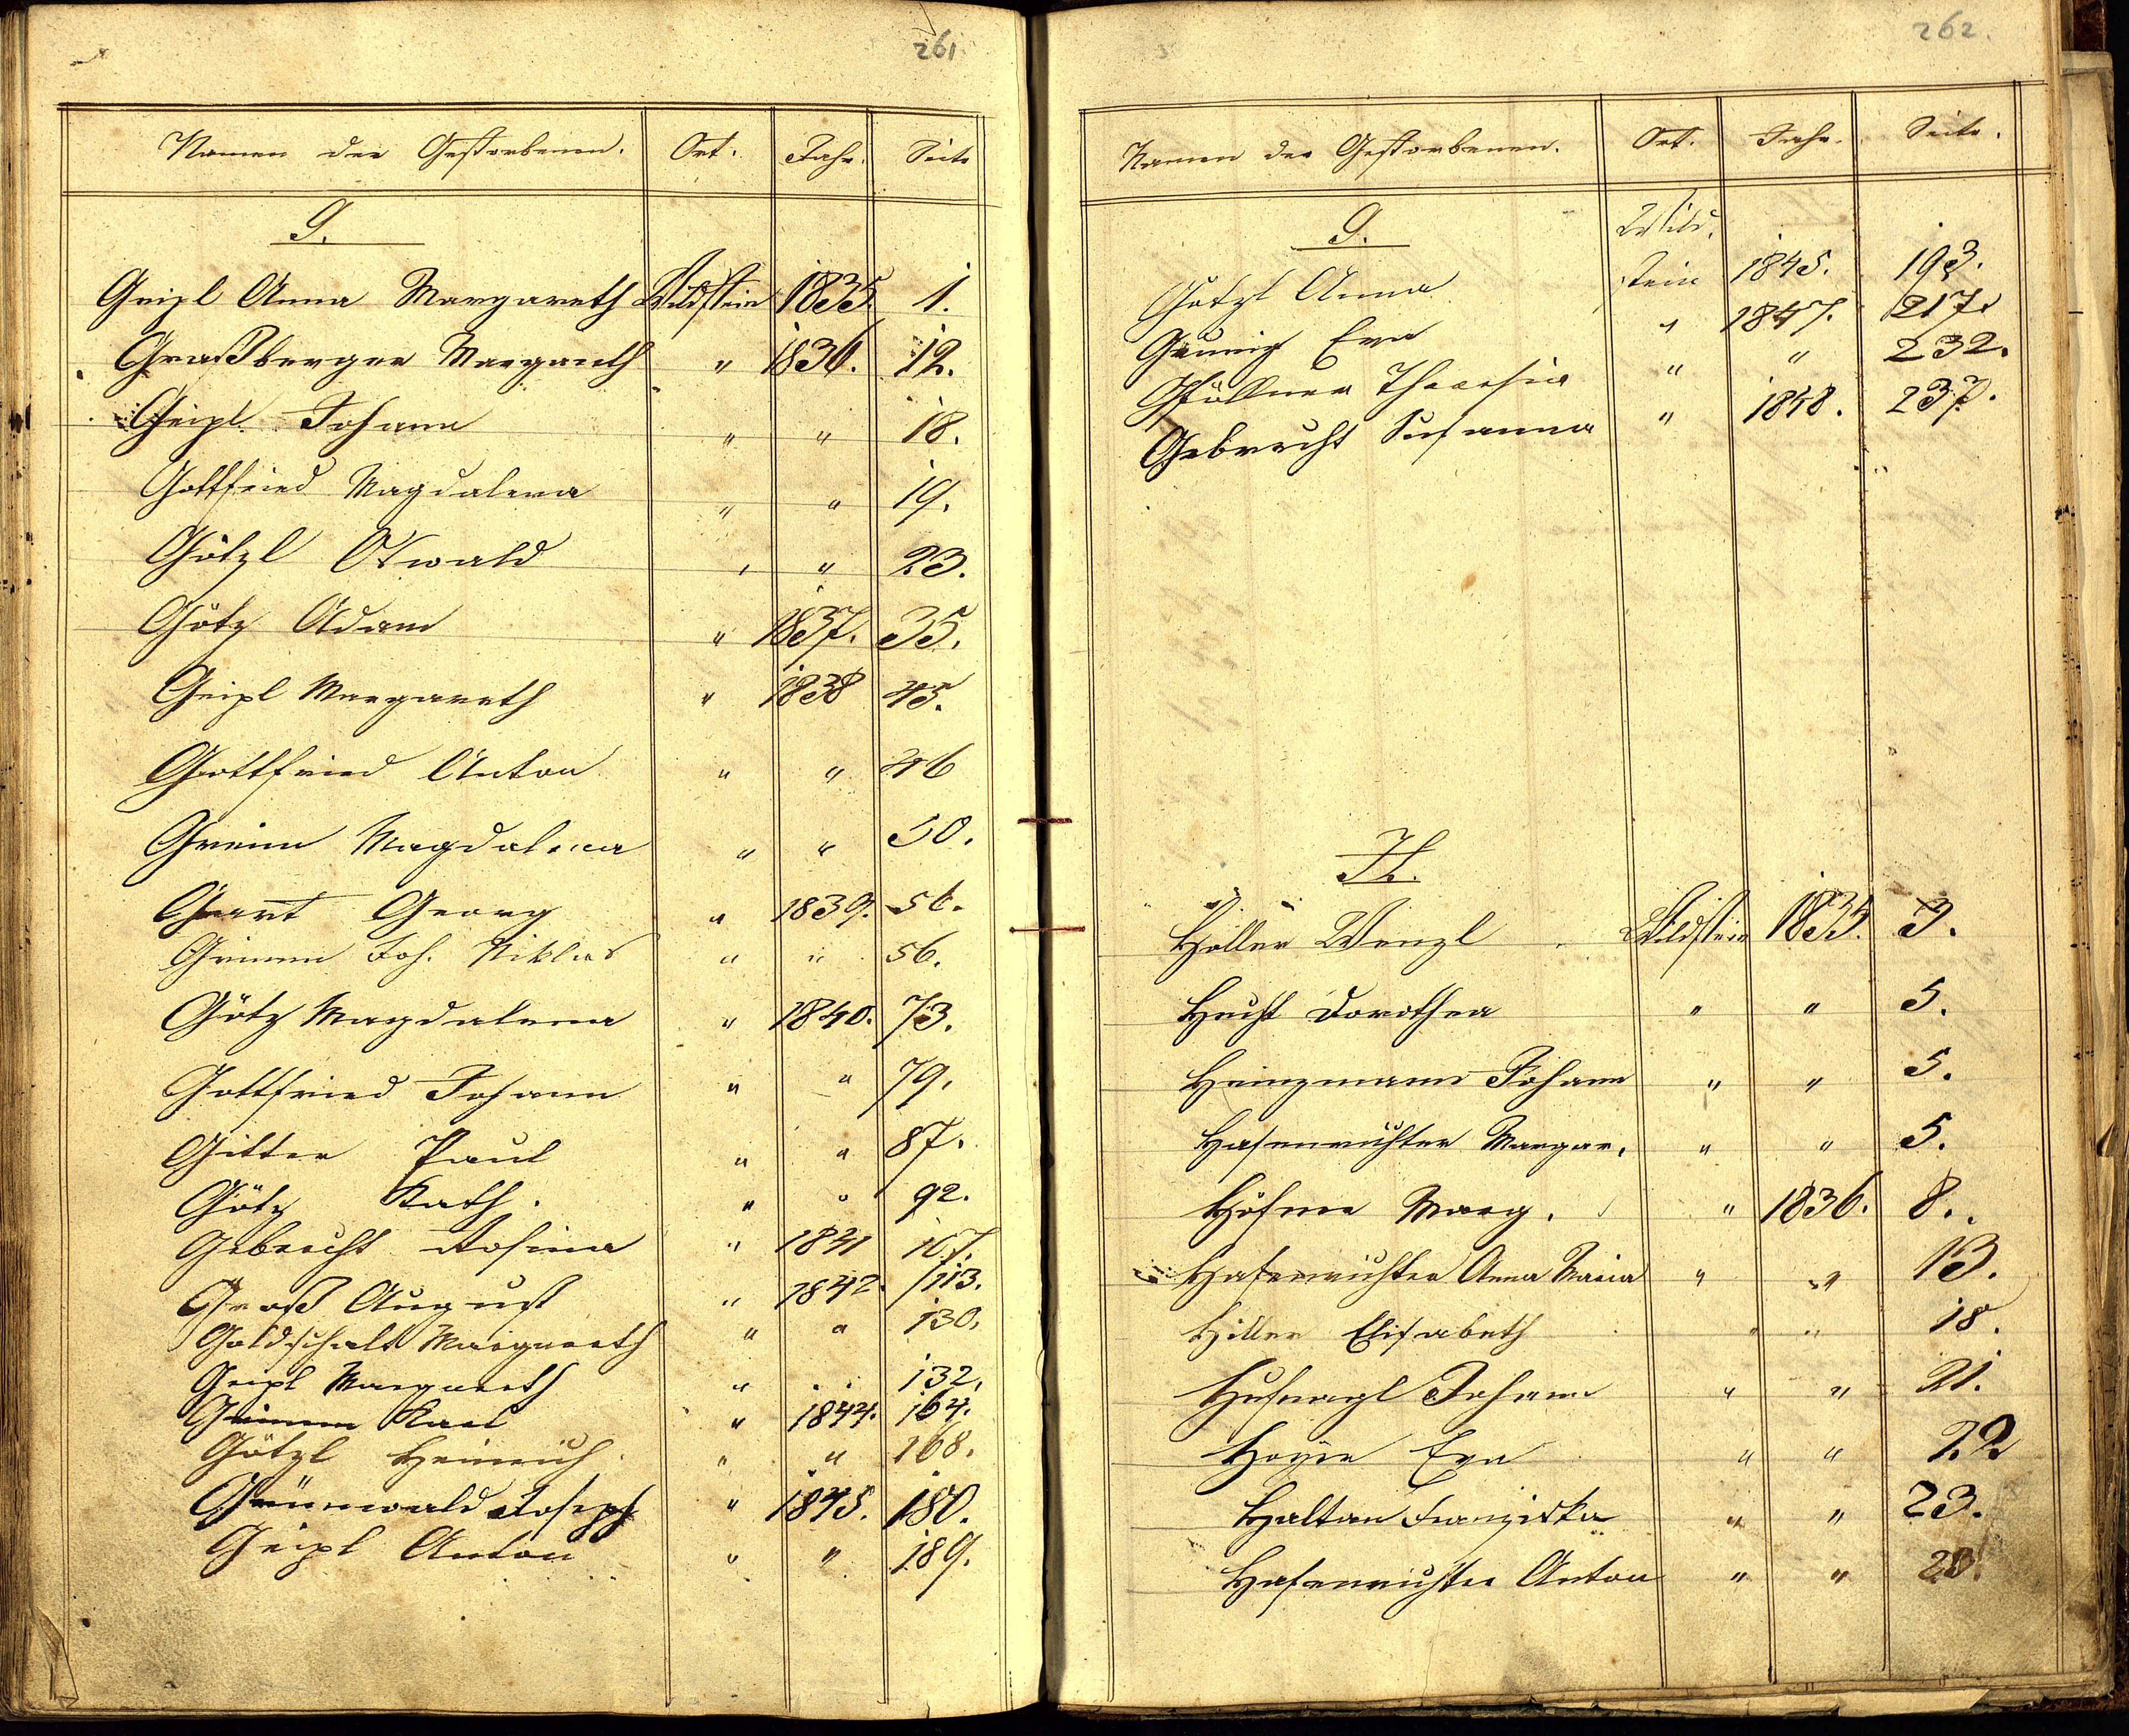 261
Namen der Gestorbenen. Ort. Jahr. Seite
G.
Geipl Anna Margareth Wildstein 1835. 1.
Graßberger Margareth " 1836. 12.
Geipl Johann " " 18.
Gottfried Magdalena " " 19.
Götzl Oswald " " 23.
Götz Adam " 1837. 35.
Geipl Margareth " 1838 45.
Gottfried Anton " " 46
Greim Magdalena " " 50.
Georg " 1839. 56.
Grimm Joh. Niklas " " 56.
Götz Magdalena " 1840. 73.
Gottfried Johann " " 79.
Gitter Paul " " 87.
Götz Kath. " " 92.
Gebrecht Rosina " 1841 107.
Groß August " 1842. 113.
Goldschalt Margareth " " 130.
Geipl Margareth " 132.
Grimm Karl " 1844. 164.
Götzl Heinrich " " 168.
Grünwald Joseph " 1845. 180.
Geipl Anton " " 189.
262.
Namen der Gestorbenen. Ort. Jahr. Seite.
G. Wild,
Götzl Anna stein 1845. 193.
Eva " 1847. 217.
Gföllner Theresia " " 232.
Gebrecht Susanna " 1848. 237.
H.
Höller Wenzl Wildstein 1835. 3.
Hecht Dorothea " " 5.
Heinzmann Johann " " 5.
Hasenrichter Margar. " " 5.
Höfner Marg. " 1836. 8.
Hasenrichter Anna Maria " " 13.
Hiller Elisabeth " " 18.
Hufnagl Johann " " 21.
Hoyer Eva " " 22
Haltan Franziska " " 23.
Hasenrichter Anton " "